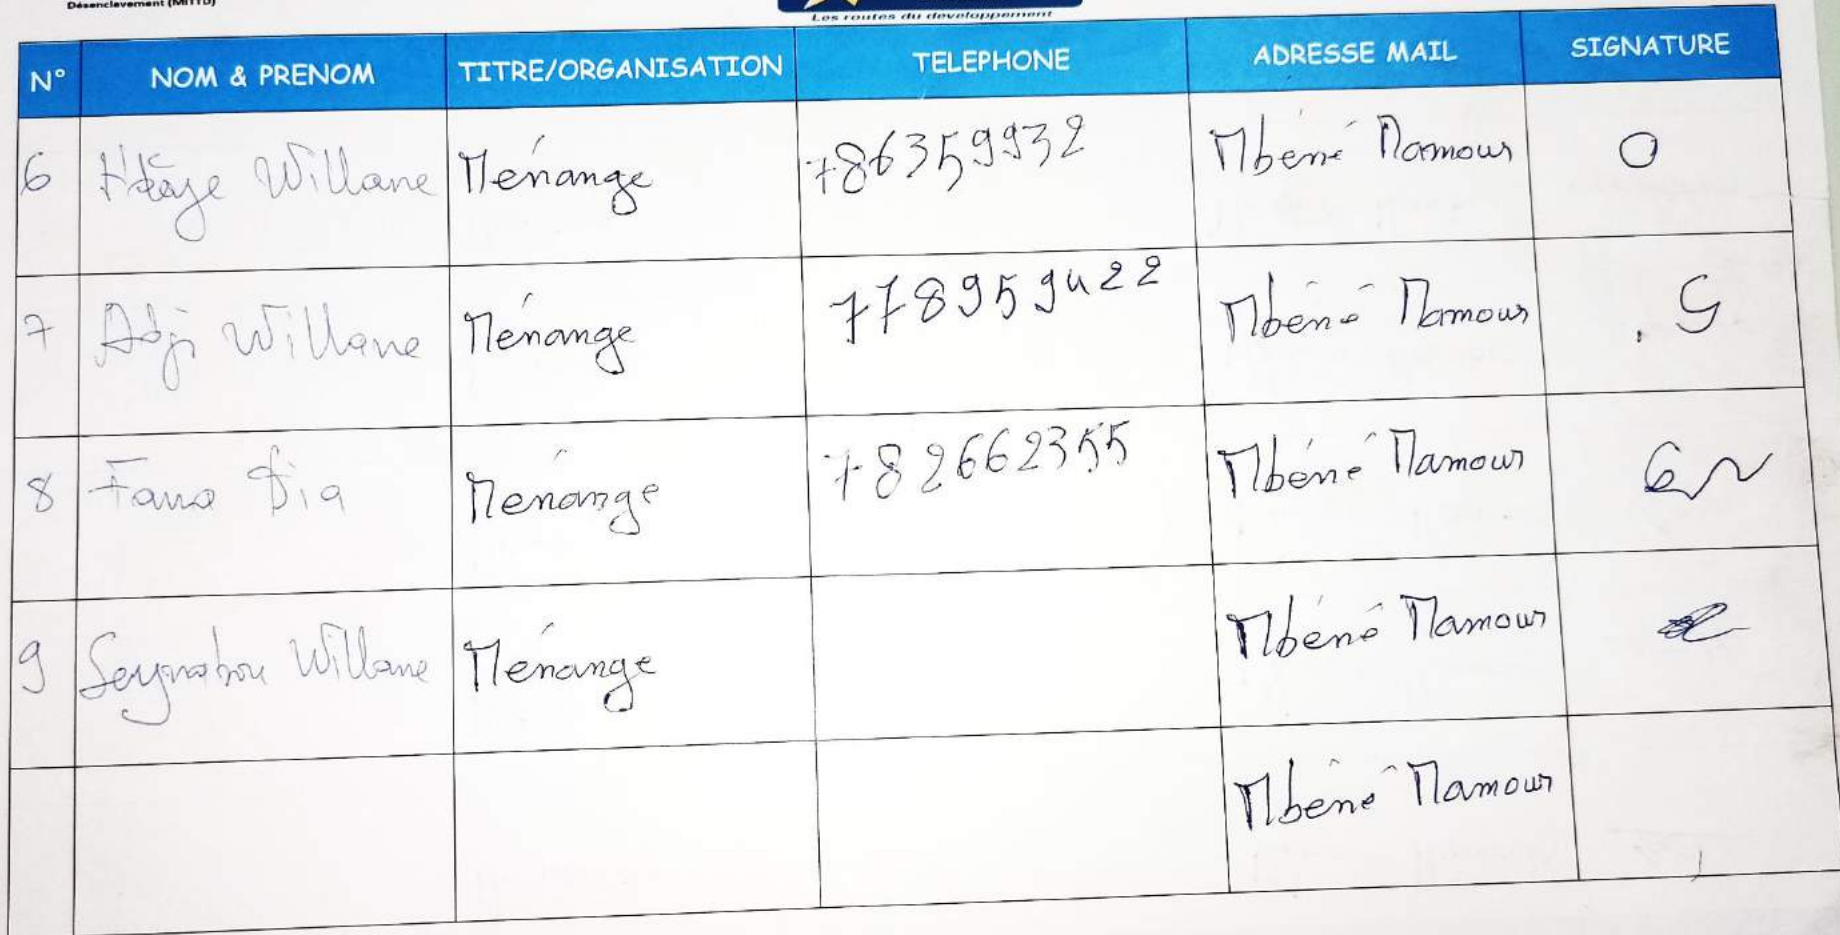 Désenclavement (MITTD)
Les routes du developpement
N° NOM & PRENOM TITRE/ORGANISATION TELEPHONE ADRESSE MAIL SIGNATURE
6 Willane Ménange 786359932 Mbéné Mamour
7 Adji Willane Ménange 778959422 Mbéné Mamour
8 Fana Dia Ménange 782662355 Mbéné Mamour
9 Seynabou Willane Ménange Mbéné Mamour
Mbéné Mamour